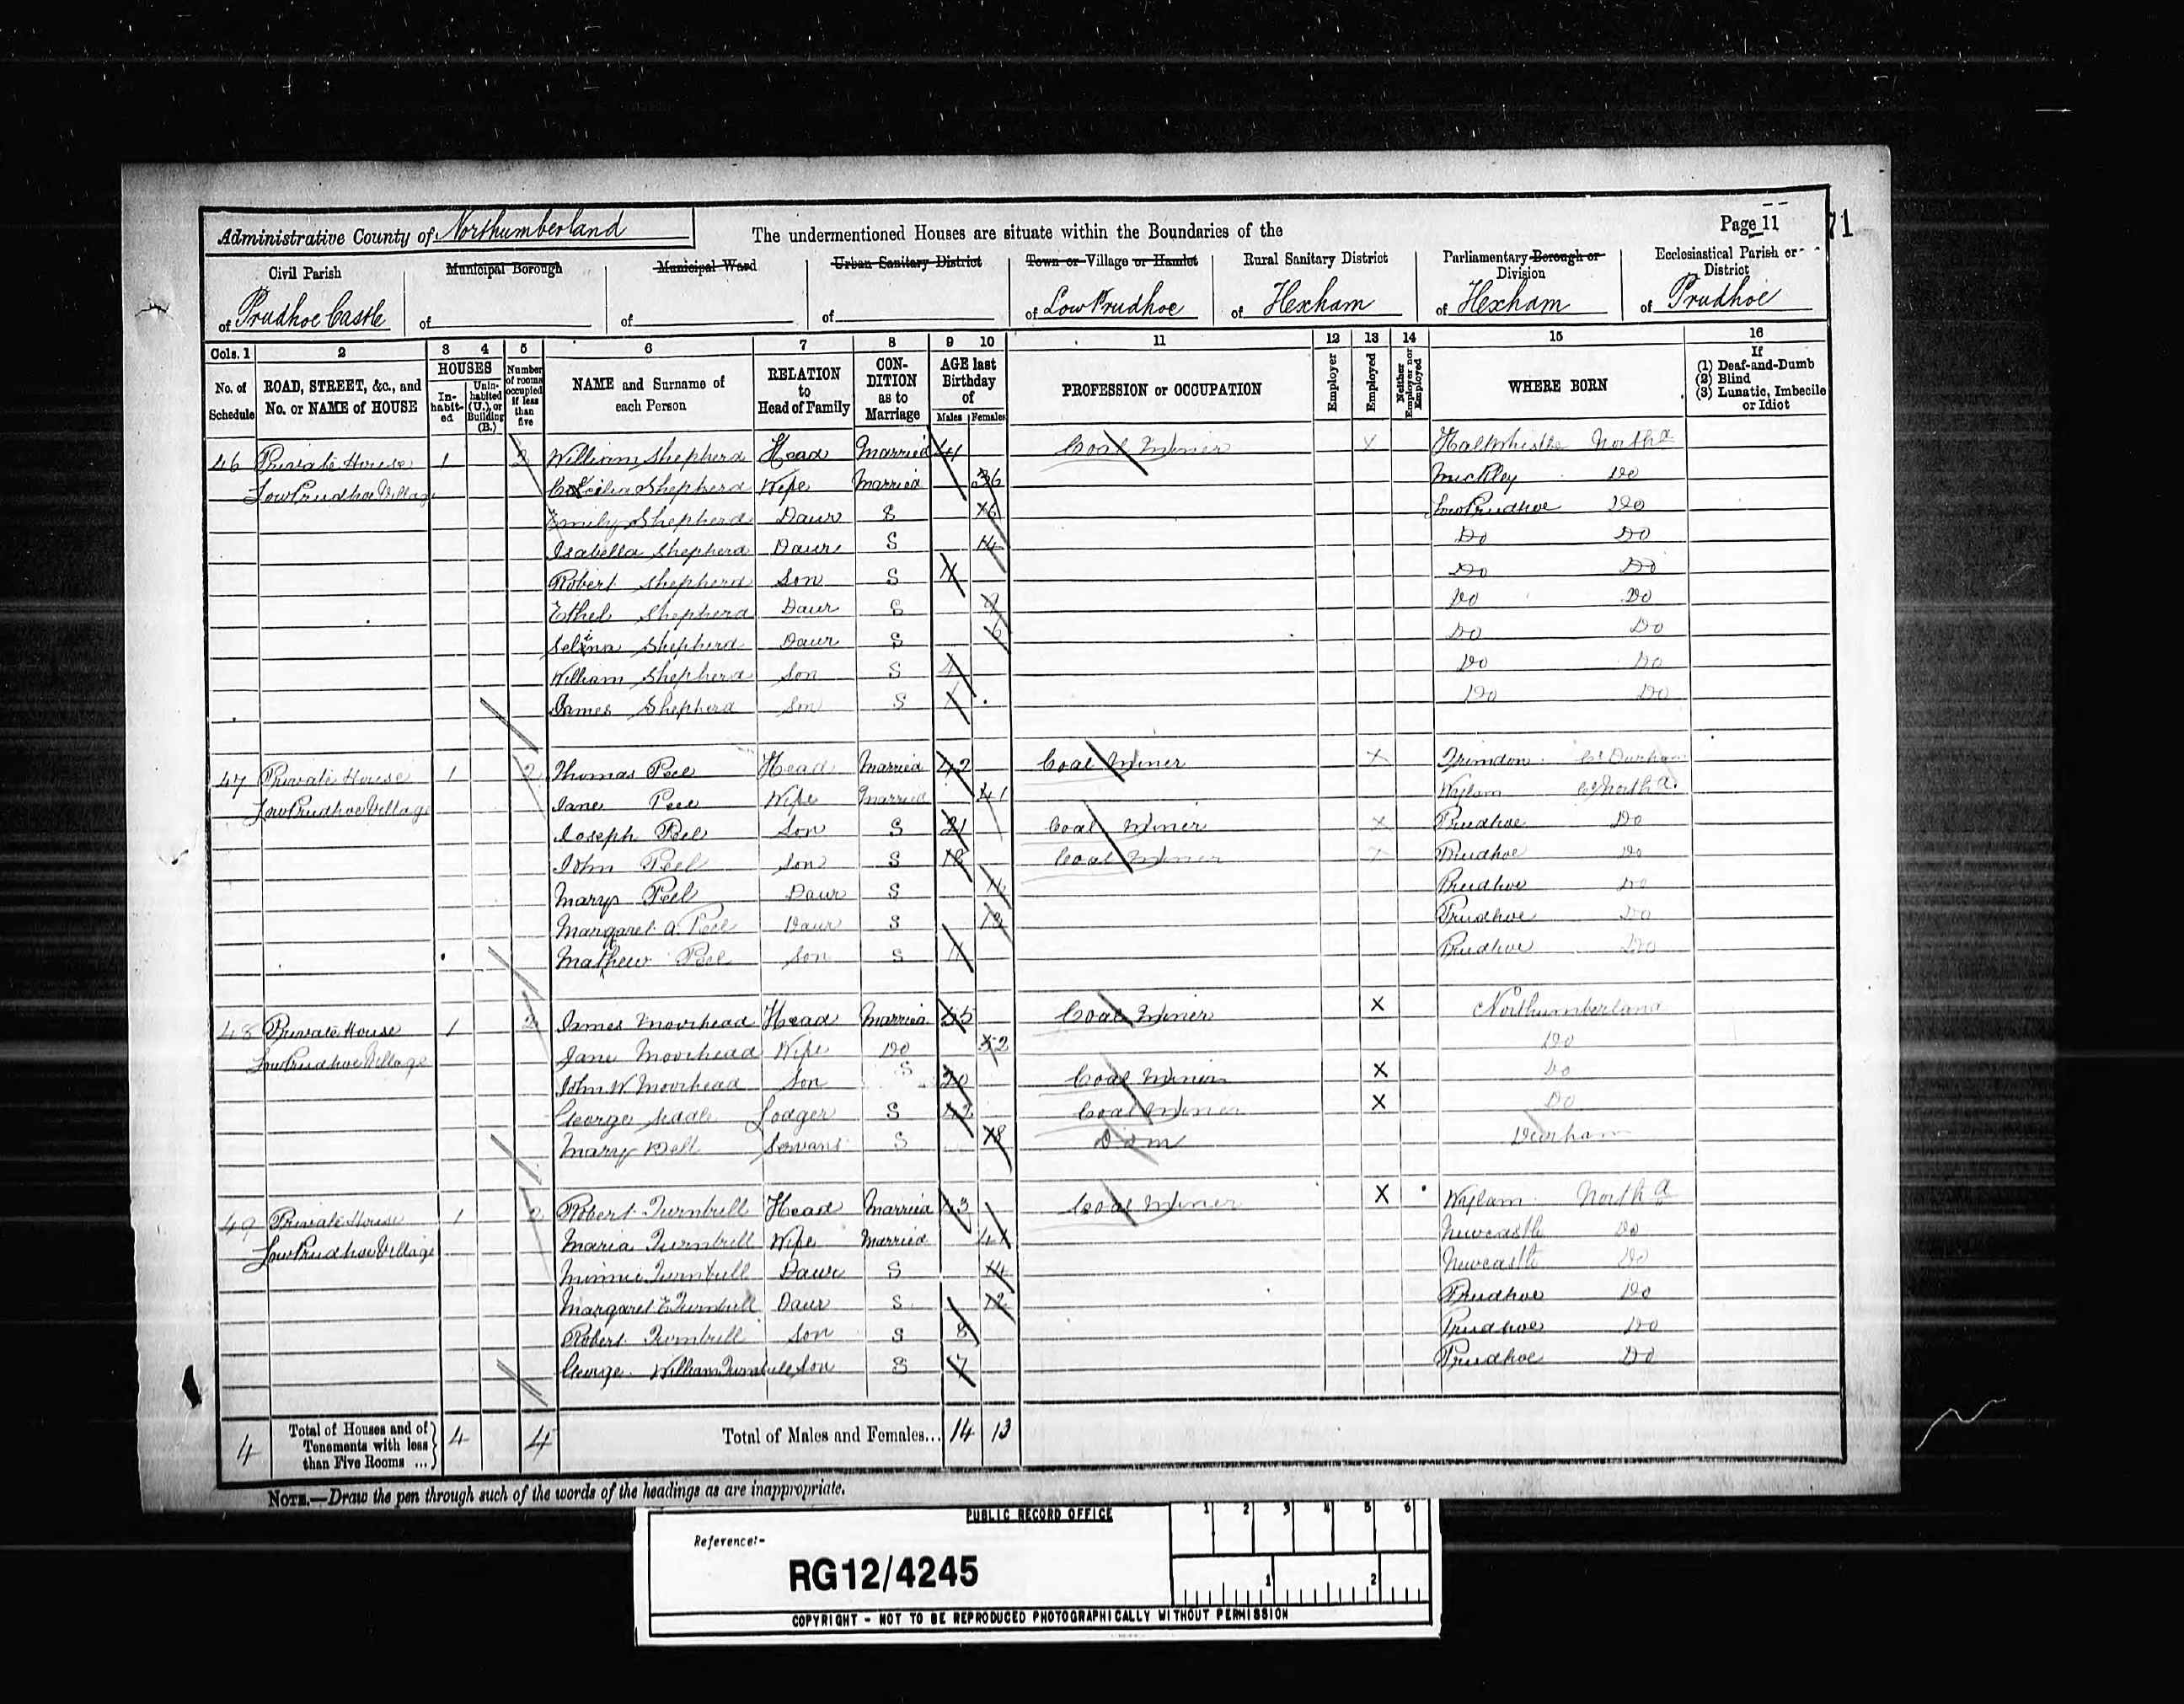 Administrative County of Northumberland
The undermentioned Houses are situate within the Boundaries of the
Page 11
71
Civil Parish
Municipal Borough
Municipal Ward
Urban Sanitary District
Town or Village or Hamlet
Rural Sanitary District
Parliamentary Borough or Division
Ecclesiastical Parish or District
of Prudhoe Castle
of
of
of
of Low Prudhoe
of Hexham
of Hexham
of Prudhoe
Cols. 1 2 3 4 5 6 7 8 9 10 11 12 13 14 15 16
No. of Schedule
ROAD, STREET, &c., and No. or NAME of HOUSE
HOUSES
In-habit-ed
Unin-habited (U.), or Building (B.)
Number of rooms occupied if less than five
NAME and Surname of each Person
RELATION to Head of Family
CON-DITION as to Marriage
AGE last Birthday of
Males Females
PROFESSION or OCCUPATION
Employer
Employed
Neither Employer nor Employed
WHERE BORN
If
(1) Deaf-and-Dumb
(2) Blind
(3) Lunatic, Imbecile or Idiot
46 Private House 1 2 William Shepherd Head Married Coal Miner X Haltwhistle North'd
Low Prudhoe Village Shepherd Wife Married 36 Mickley Do
Emily Shepherd Daur S 16 Low Prudhoe Do
Isabella Shepherd Daur S 14 Do Do
Robert Shepherd Son S Do Do
Ethel Shepherd Daur S 9 Do Do
Selina Shepherd Daur S 6 Do Do
William Shepherd Son S 4 Do Do
James Shepherd Son S 1 Do Do
47 Private House 1 2 Thomas Peel Head Married 42 Coal Miner X Trimdon Co Durham
Low Prudhoe Village Jane Peel Wife Married 41 Wylam Co North'd
Joseph Peel Son S 21 Coal Miner X Prudhoe Do
John Peel Son S 18 Coal Miner X Prudhoe Do
Mary Peel Daur S Prudhoe Do
Margaret A Peel Daur S 13 Prudhoe Do
Mathew Peel Son S 11 Prudhoe Do
48 Private House 1 James Moorhead Head Married 55 Coal Miner X Northumberland
Low Prudhoe Village Jane Moorhead Wife Do 52 Do
John W. Moorhead Son S 20 Coal Miner X Do
George Lodger S 42 Coal Miner X Do
Mary Bell Servant S 18 Dom Durham
49 Private House 1 2 Robert Turnbull Head Married 43 Coal Miner X Wylam North'd
Low Prudhoe Village Maria Turnbull Wife Married 41 Newcastle Do
Minnie Turnbull Daur S 14 Newcastle Do
Margaret E Turnbull Daur S 12 Prudhoe Do
Robert Turnbull Son S 8 Prudhoe Do
George William Turnbull Son S 7 Prudhoe Do
4 Total of Houses and of Tenements with less than Five Rooms ... 4 4 Total of Males and Females... 14 13
NOTE.—Draw the pen through such of the words of the headings as are inappropriate.
PUBLIC RECORD OFFICE
1 2 3 4 5 6
Reference:-
RG12/4245
1 2
COPYRIGHT - NOT TO BE REPRODUCED PHOTOGRAPHICALLY WITHOUT PERMISSION